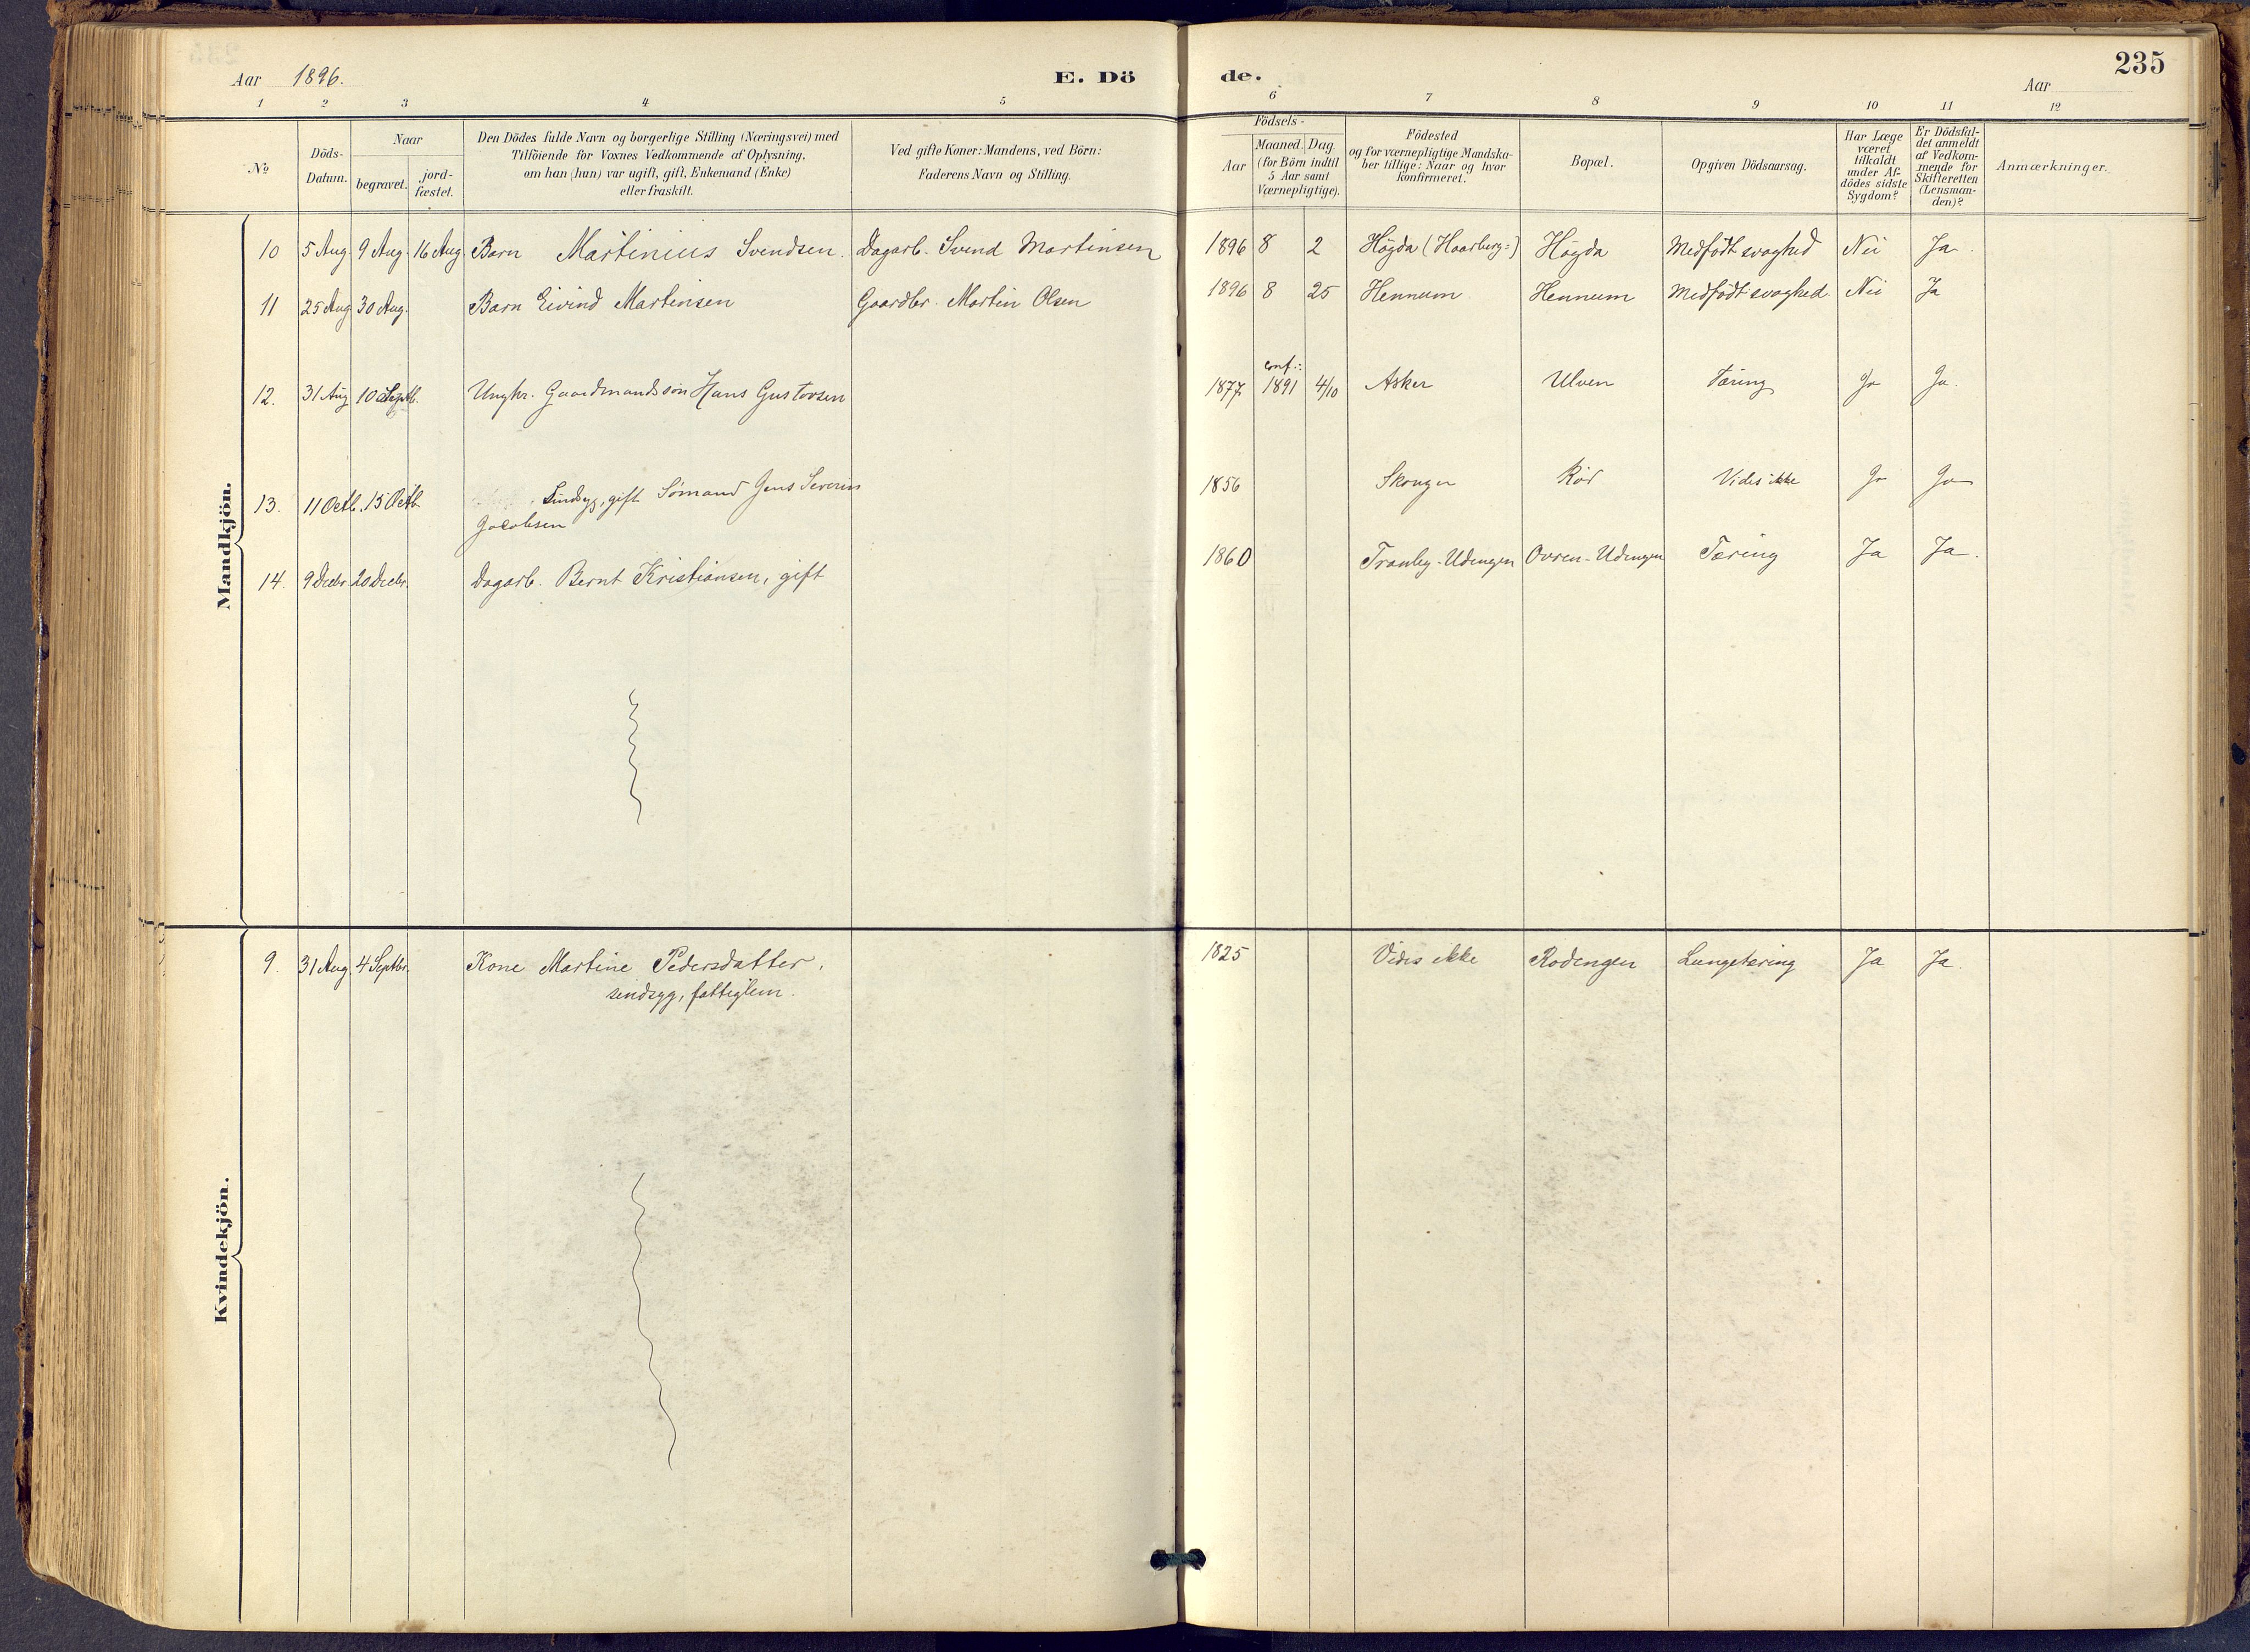 Aar 1896.
E. Döde.
Aar
235
1 2 3 4 5 6 7 8 9 10 11 12
No
Döds-
Datum.
Naar
begravet.
jord-
fæstet.
Den Dödes fulde Navn og borgerlige Stilling (Næringsvei) med
Tilföiende for Voxnes Vedkommende af Oplysning,
om han (hun) var ugift, gift, Enkemand (Enke)
eller fraskilt.
Ved gifte Koner: Mandens, ved Börn:
Faderens Navn og Stilling.
Födsels-
Aar
Maaned. Dag.
(for Börn indtil
5 Aar samt
Værnepligtige).
Födested
og for værnepligtige Mandska-
ber tillige: Naar og hvor
konfirmeret.
Bopæl.
Opgiven Dödsaarsag.
Har Læge
været
tilkaldt
under Af-
dödes sidste
Sygdom?
Er Dödsfal-
det anmeldt
af Vedkom-
mende for
Skifteretten
(Lensman-
den)?
Anmærkninger.
Mandkjön.
10 5 Aug 9 Aug. 16 Aug Barn Martinius Svendsen. Dagarb. Svend Martinsen 1896 8 2 Högda (Haarberg:) Högda Medfödt svaghed Nei Ja.
11 25 Aug 30 Aug. Barn Eivind Martinsen Gaardbr. Martin Olsen 1896 8 25 Hennum Hennum Medfödt svaghed. Nei Ja
conf.:
12. 31 Aug 10 Septb. Ungkr. Gaardmandssön Hans Gustavsen 1877 1891 4/10 Asker Ulven Tæring Ja Ja.
13. 11 Octb. 15 Octb Sindsyg, gift Sömand Jens Severin 1856 Skouger Röd Vides ikke Ja Ja
Jacobsen
14. 9 Decbr 20 Decbr. Dagarb. Bernt Kristiansen, gift 1860 Tranby-Udengen Ovren-Udengen Tæring Ja Ja.
Kvindekjön.
9. 31 Aug 4 Septbr. Kone Martine Pedersdatter, 1825 Vides ikke Rodengen Lungetæring Ja Ja.
sindsyg, fattiglem.